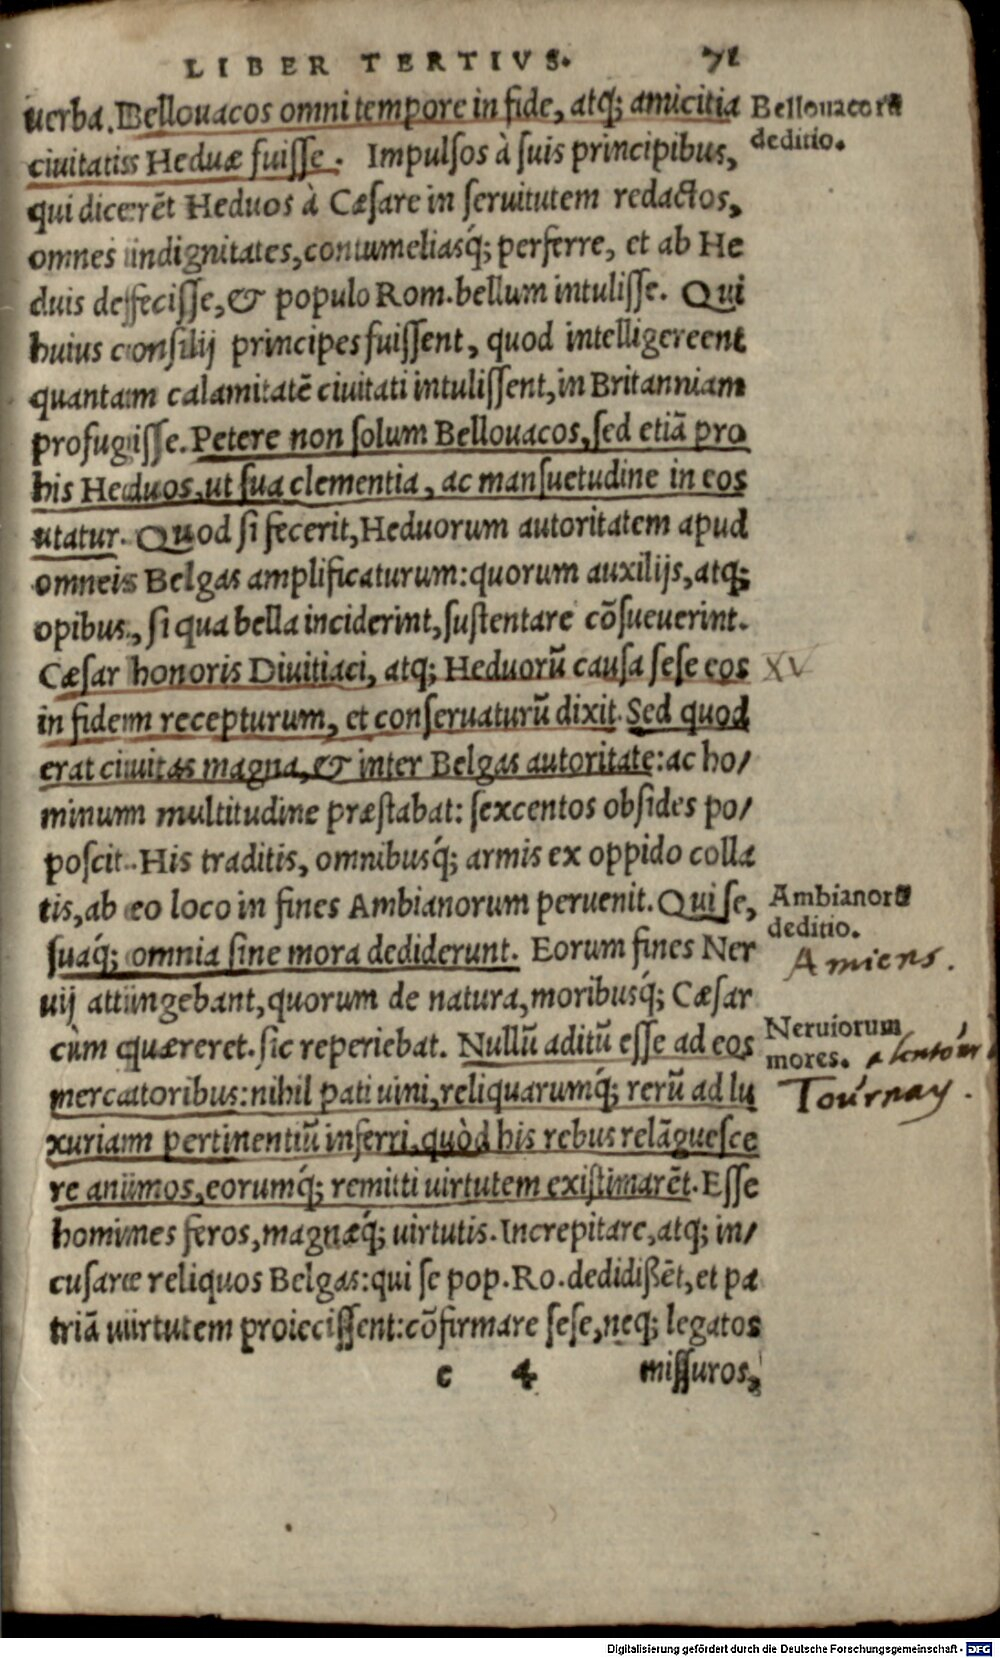 LIBER TERTIVS. 71
uerba. Bellouacos omni tempore in fide, atq; amicitia
Bellouacorū
deditio.
ciuitatis Heduæ fuisse. Impulsos à suis principibus,
qui dicerēt Heduos à Cæsare in seruitutem redactos,
omnes indignitates, contumeliasq́; perferre, et ab He
duis defecisse, & populo Rom. bellum intulisse. Qui
huius consilij principes fuissent, quod intelligerent
quantam calamitatē ciuitati intulissent, in Britanniam
profugisse. Petere non solum Bellouacos, sed etiā pro
his Heduos, ut sua clementia, ac mansuetudine in eos
utatur. Quod si fecerit, Heduorum autoritatem apud
omneis Belgas amplificaturum: quorum auxilijs, atq;
opibus, si qua bella inciderint, sustentare cōsueuerint.
Cæsar honoris Diuitiaci, atq; Heduorū causa sese eos
XV
in fidem recepturum, et conseruaturū dixit. Sed quod
erat ciuitas magna, & inter Belgas autoritate: ac ho/
minum multitudine præstabat: sexcentos obsides po/
poscit. His traditis, omnibusq́; armis ex oppido colla
tis, ab eo loco in fines Ambianorum peruenit. Qui se,
Ambianorū
deditio.
Amiens.
suaq́; omnia sine mora dediderunt. Eorum fines Ner
uij attingebant, quorum de natura, moribusq́; Cæsar
cùm quæreret. sic reperiebat. Nullū aditū esse ad eos
Neruiorum
mores.
Tournay.
mercatoribus: nihil pati uini, reliquarumq́; rerū ad lu
xuriam pertinentiū inferri, quòd his rebus relāguesce
re animos, eorumq́; remitti uirtutem existimarēt. Esse
homines feros, magnæq́; uirtutis. Increpitare, atq; in/
cusare reliquos Belgas: qui se pop. Ro. dedidißēt, et pa
triā uirtutem proiecissent: cōfirmare sese, neq; legatos
c 4 missuros,
Digitalisierung gefördert durch die Deutsche Forschungsgemeinschaft - DFG